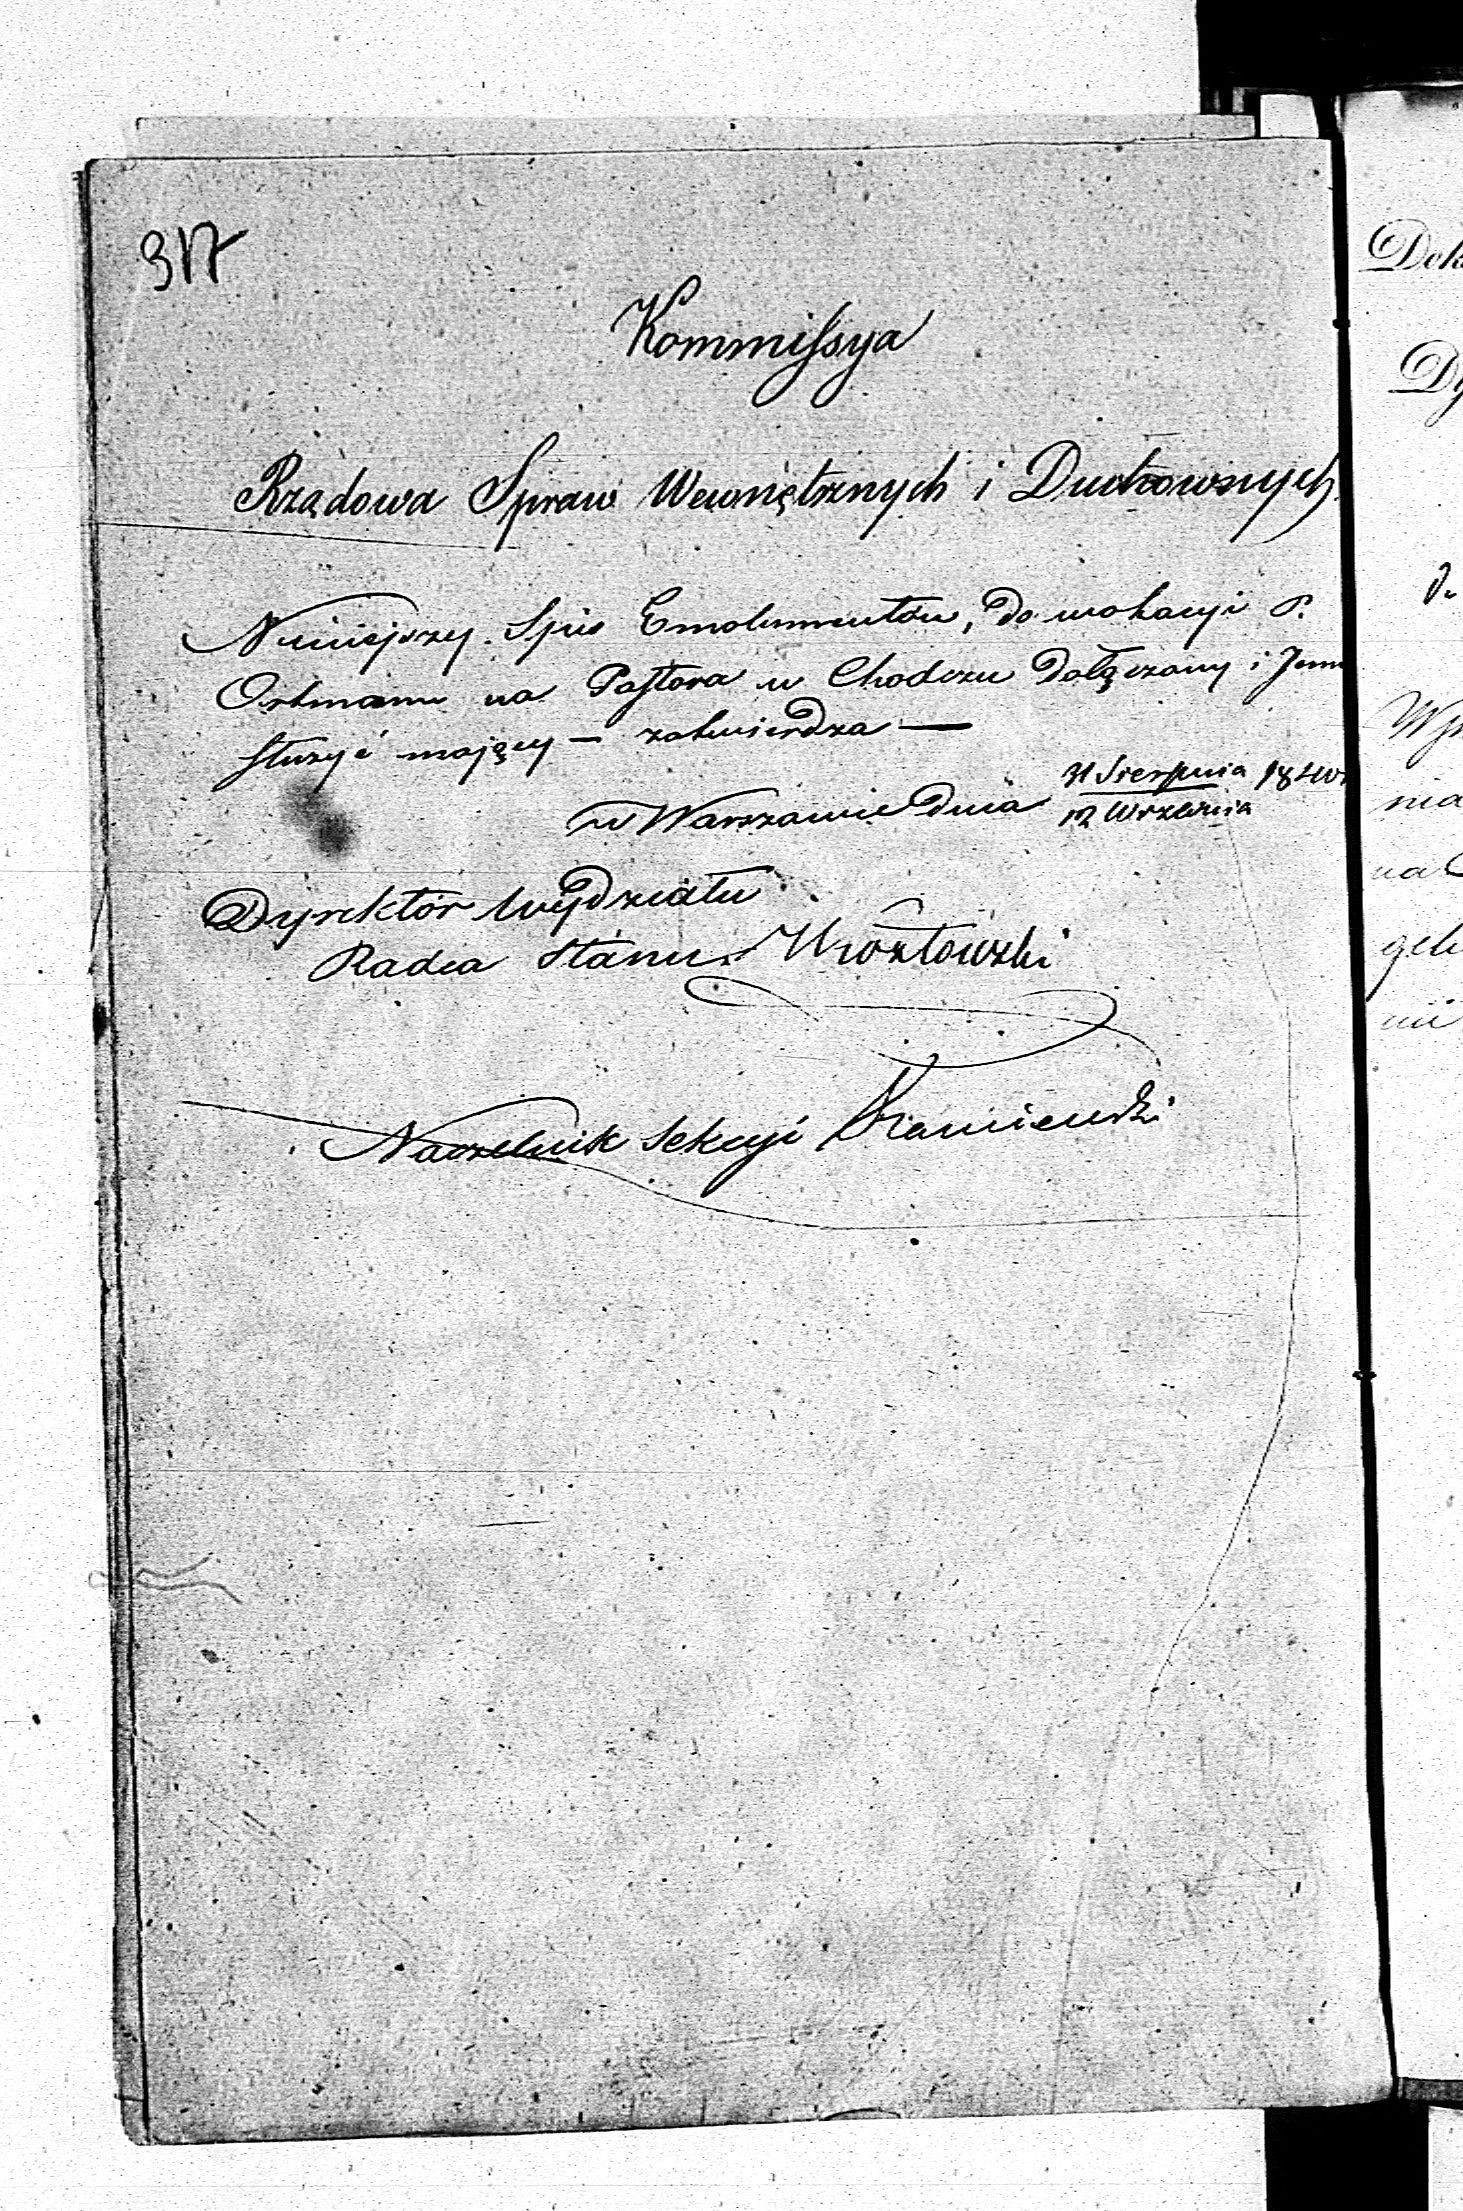 317
Kommissya
Rządowa Spraw Wewnętrznych i Duchownych
Niniejszy Spis Emolumentów, do wokacyi P.
Ortmann na Pastora w Chodczu dołączony i Jemu
służyć mający — zatwierdza —
w Warszawie dnia 31 Sierpnia
12 Września
Dyrektor Wydziału
Radca Stanu
Naczelnik Sekcyi Kamieński
Dy
nia